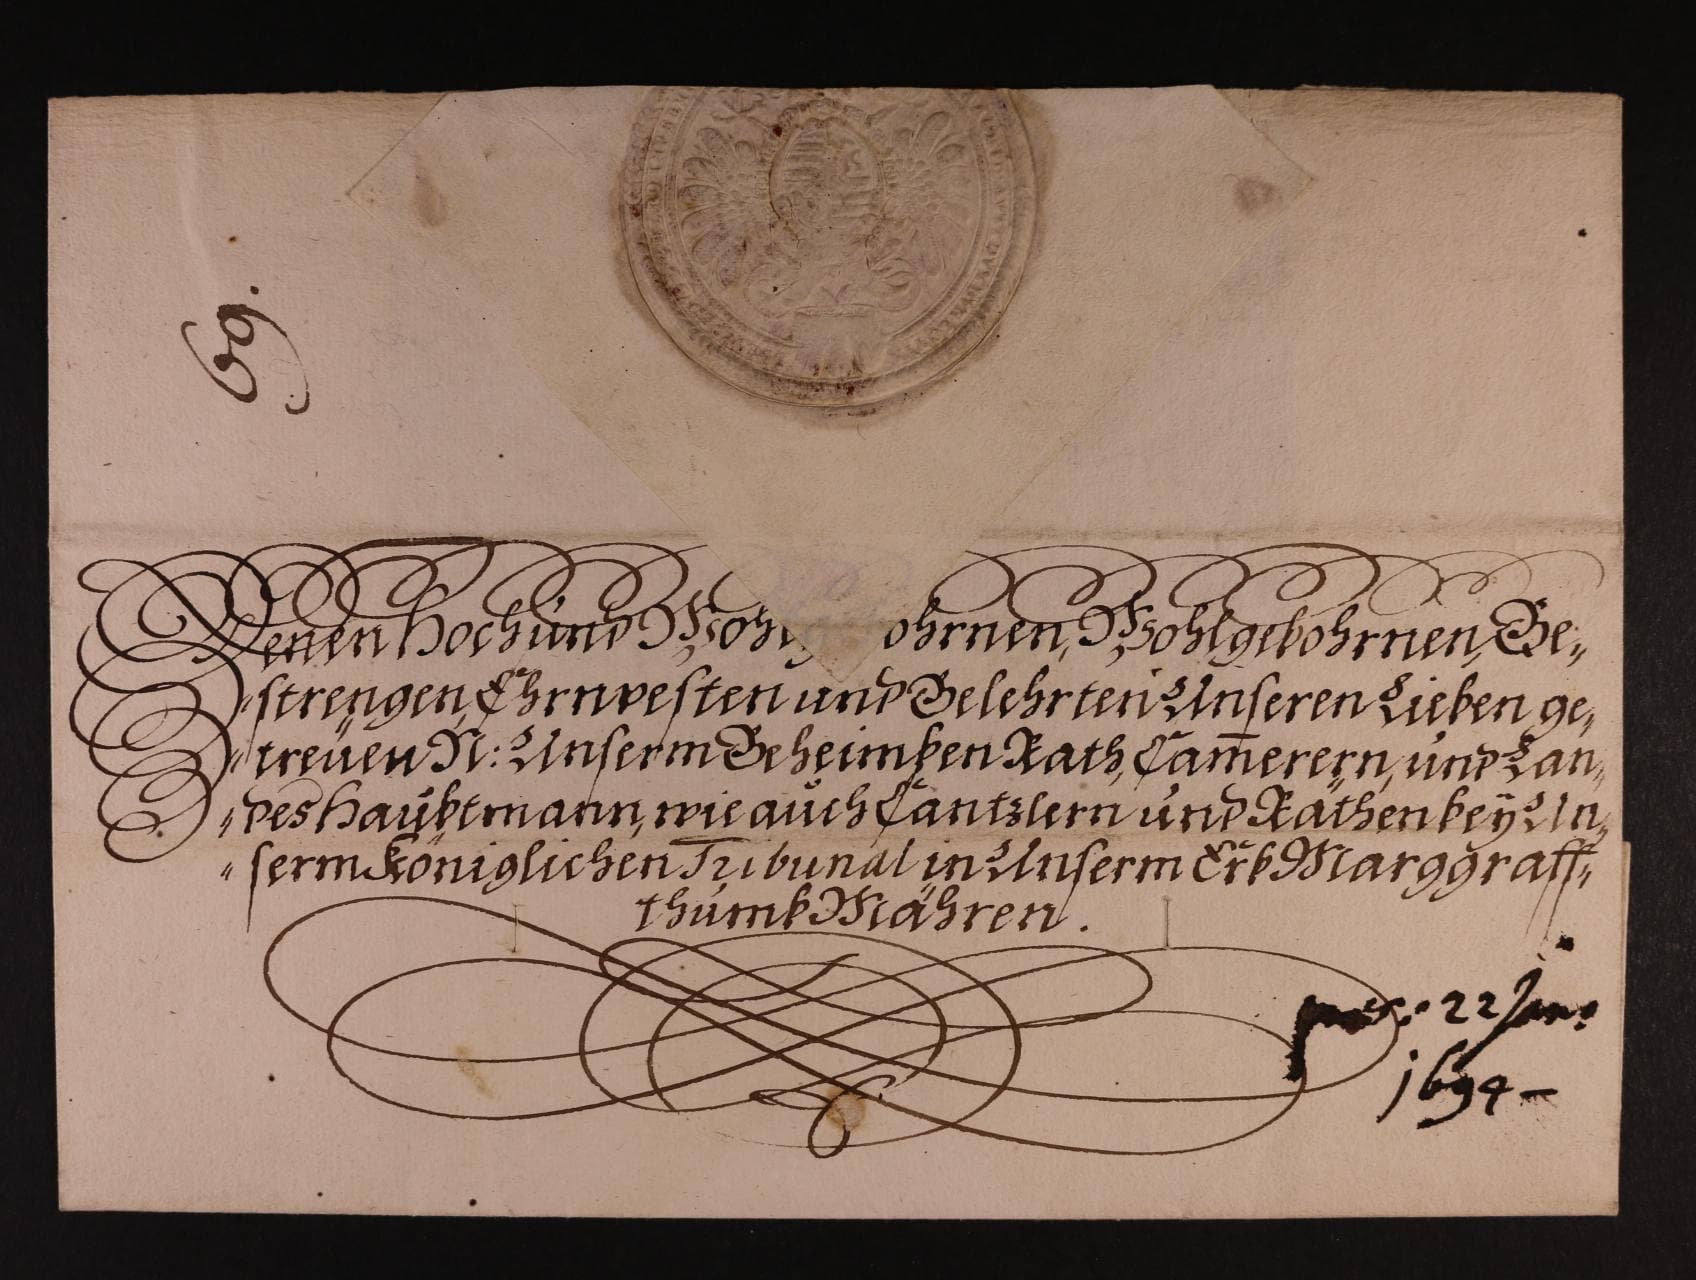 69.
Denen Hoch und Wohlg ohrnen, Wohlgebohrnen, Ge„
„strengen, Ehrnvesten und Gelehrten Unseren Lieben ge„
„treüen N: Unserm Geheimben Rath, Cam̄erern, und Lan„
„des Haubtmann, wie auch Cantzlern und Räthen bey Un„
„serm Königlichen Tribunal in Unserm Erb Marggraff„
thumb Mähren.
22 Jan:
1694